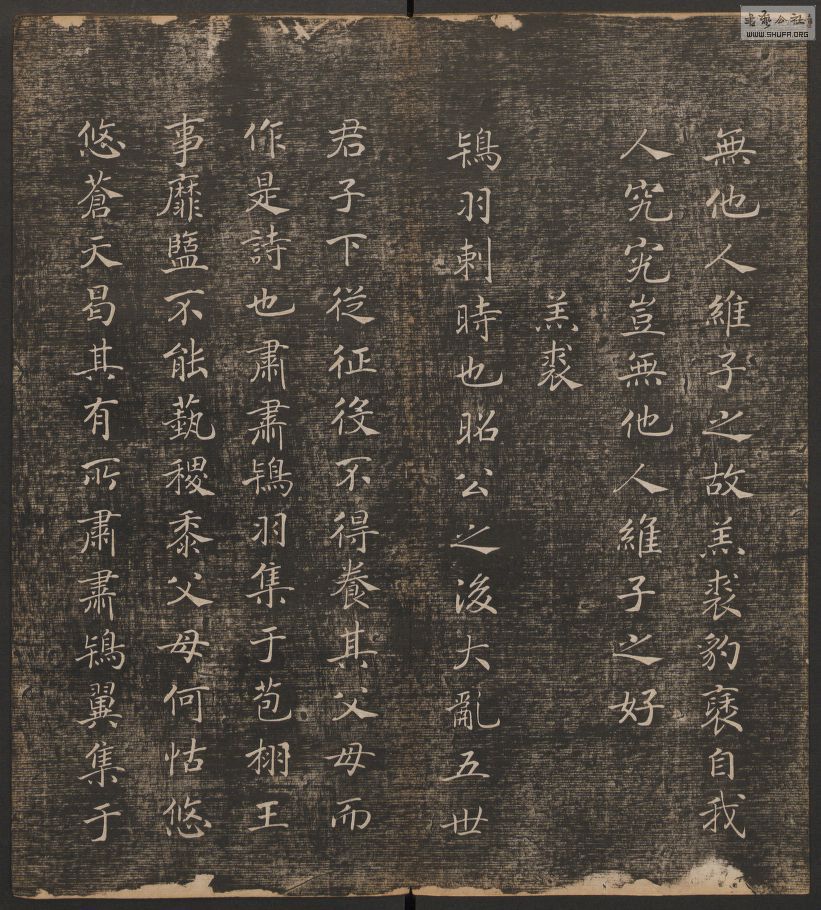 無他人維子之故羔裘豹褎自我
人究究豈無他人維子之好
羔裘
鴇羽刺時也昭公之後大亂五世
君子下從征役不得養其父母而
作是詩也肅肅鴇羽集于苞栩王
事靡盬不能蓺稷黍父母何怙悠
悠蒼天曷其有所肅肅鴇翼集于
WWW.SHUFA.ORG